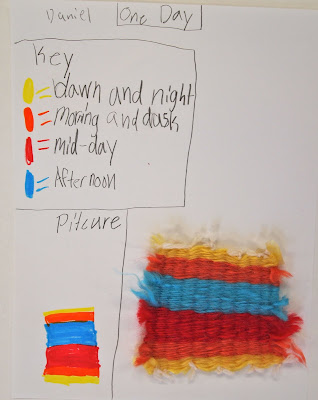 Daniel One Day
Key
= dawn and night
= morning and dusk
= mid-day
= Afternoon
Pitcure